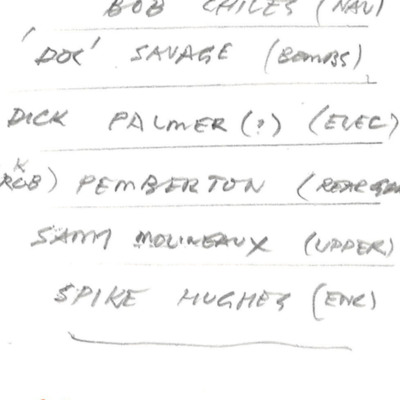 BOB CHILES (NAV)
'DOC' SAVAGE (BOMBS)
DICK PALMER (?) (ELEC)
K
ROB) PEMBERTON (REAR
SAMM MOLINEAUX (UPPER)
SPIKE HUGHES (ENG)